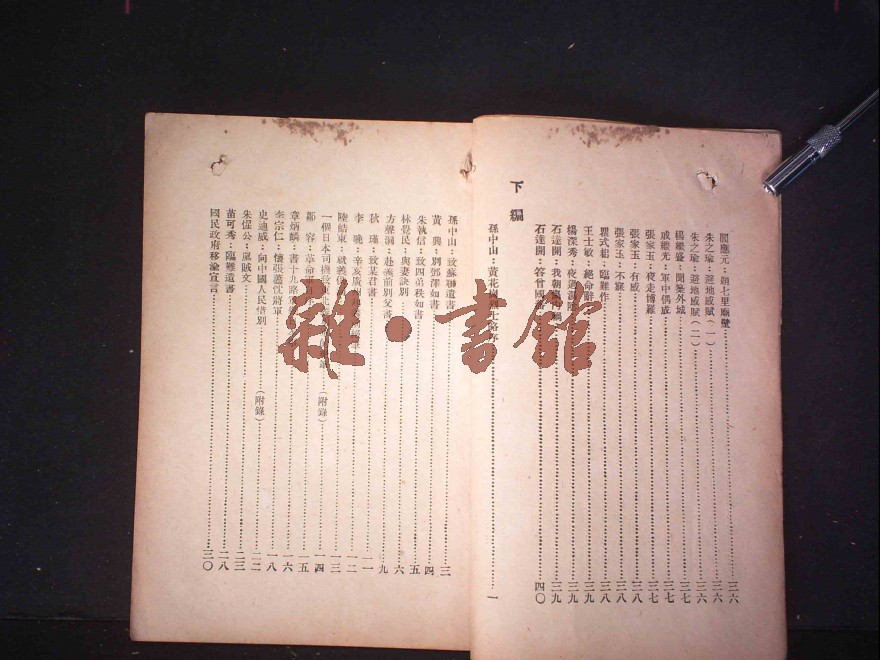 閻應元：題七里廟壁……三六
朱之瑜：避地感賦（一）……三六
朱之瑜：避地感賦（二）……三六
楊繼盛：開煤外城……三七
戚繼光：軍中偶成……三七
張家玉：夜走博羅……三七
張家玉：有感……三八
張家玉：不寐……三八
瞿式耜：臨難作……三八
王士敏：絕命辭……三九
楊深秀：夜過……三九
石達開：我朝……三九
石達開：答曾國……四〇
下編
孫中山：黃花岡……士略序……一
孫中山：致蘇聯遺書……三
黃興：別鄧澤如書……四
朱執信：致四弟秩如書……五
林覺民：與妻訣別……六
方聲洞：赴義前別父書……九
秋瑾：致某君書……一一
李晚：辛亥廣州……一二
陸皓東：就義供……一三
一個日本司機……（附錄）……一四
鄒容：革命……一五
章炳麟：書十九路軍……一六
李宗仁：懷張藎忱將軍……一八
史迪威：向中國人民惜別……（附錄）……二二
朱惺公：罵賊文……二三
苗可秀：臨難遺書……二八
國民政府移渝宣言……三〇
雜·書館